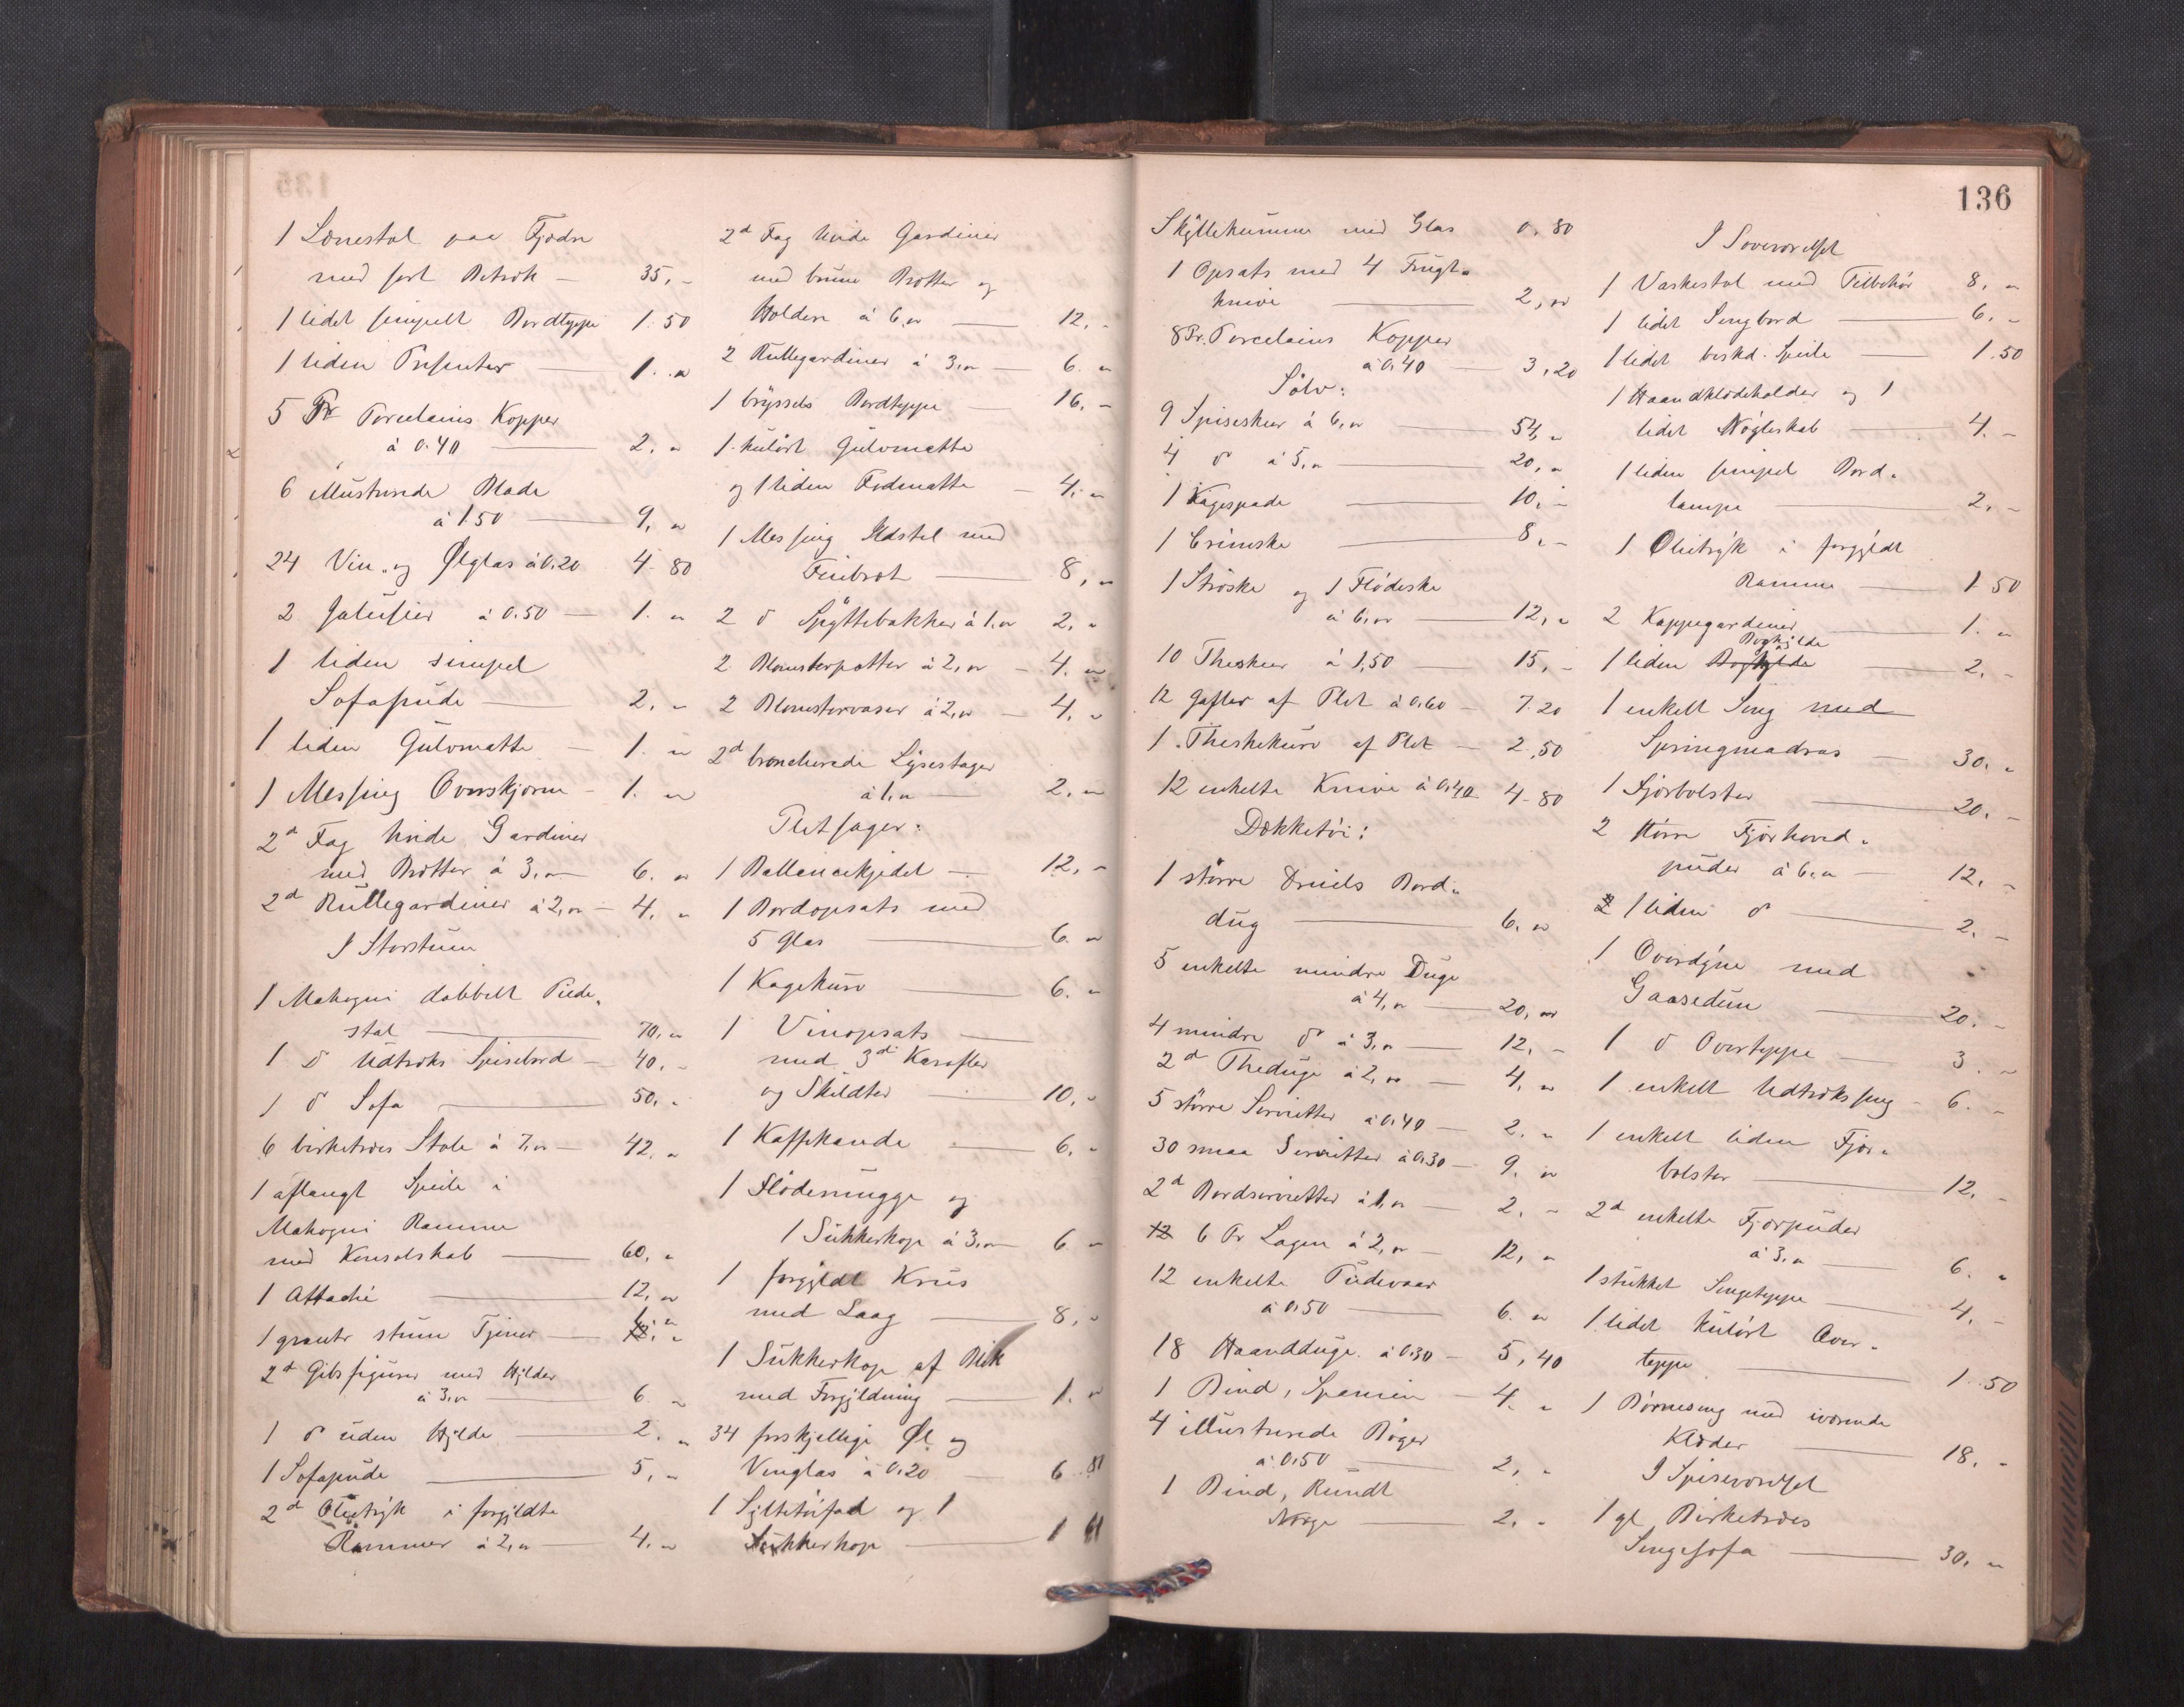 1 Lænestol paa Fjædre
med sort Betræk — 35,–
1 lidet simpelt Bordteppe 1.50
1 liden Presenter — 1. „
5 Pr Porcelains Kopper
à 0.40 — 2. „
6 illustrerede Blade
à 1.50 — 9. „
24 Vin- og Ølglas à 0.20 4.80
2 Jalusier à 0.50 — 1. „
1 liden simpel
Sofapude — 2. „
1 liden Gulvmatte — 1. „
1 Messing Ovnskjærm — 1. „
2d Fag hvide Gardiner
med Brætter à 3, „ 6. „
2d Rullegardiner à 2, „ — 4. „
I Storstuen
1 Mahogni dobbelt Piede-
stal — 70, „
1 d Udtræks Spisebord — 40. „
1 d Sofa — 50. „
6 birketræes Stole à 7, „ — 42. „
1 aflangt Speile i
Mahogni Ramme
med Konsolskab — 60, „
1 Attaché — 12, „
6 „
1 stum Tjener — 12. „
2d Gibsfigurer med Hylder
à 3, „ — 6. „
1 d uden Hylde — 2. „
1 Sofapude — 5, „
2d Olietryk i forgyldte
Rammer à 2, „ — 4. „
2d Fag hvide Gardiner
med brune Brætter og
Holdere à 6, „ — 12. –
2 Rullegardiner à 3, „ — 6. „
1 bryssels Bordteppe — 16, –
1 kulørt Gulvmatte
og 1 liden Fodmatte — 4. „
1 Messing Ildstel med
Fiirbræt — 8, „
2 d Spyttebakker à 1. „ 2, „
2 Blomsterpotter à 2, „ — 4. „
2 Blomstervaser à 2, „ — 4, „
2d broncherede Lysestager
à 1, „ — 2. „
Pletsager:
1 Ballancekjedel — 12, –
1 Bordopsats med
5 Glas — 6. „
1 Kagekurv — 6. „
1 Vinopsats —
med 3de Karafler
og Skildter — 10, „
1 Kaffekande — 6, „
1 Flødemugge og
1 Sukkerkop à 3, „ 6 „
1 forgyldt Krus
med Laag — 8, „
1 Sukkerkop af Blik
med Forgyldning — 1. „
34 forskjellige Øl og
Vinglas à 0.20 — 6.80
1 Syltetøifad og 1
Sukkerkop — 1
136
Skyllekumme med Glas 0.80
1 Opsats med 4 Frugt-
knive — 2, „
8 Pr. Porcelains Kopper
à 0,40 — 3,20
Sølv:
9 Spiseskeer à 6, „ — 54, „
4 d à 5, „ — 20, „
1 Kagespade — 10, –
1 Grimske — 8, –
1 Strøske og 1 Flødeske
à 6, „ — 12, „
10 Theskeer à 1,50 — 15, –
12 Gafler af Plet à 0.60 — 7.20
1 Theskekurv af Plet — 2.50
12 enkelte Knive à 0,40 4.80
Dækketøi:
1 større Dreiels Bord-
dug — 6. „
5 enkelte mindre Duge
à 4, „ — 20, „
4 mindre d à 3, „ — 12, –
2d Theduge à 2, „ — 4, „
5 større Servietter à 0,40 — 2. „
30 smaa Servietter à 0.30 — 9. „
2d Bordservietter à 1, „ — 2. –
12 6 Pr Lagen à 2, „ — 12, „
12 enkelte Pudevaar
à 0.50 — 6. „
18 Haandduge à 0.30 — 5,40
1 Bind, Spanien — 4. „
4 illustrerede Bøger
à 0.50 — 2, „
1 Bind, Rundt
Norge — 2. „
I Soveværelset
1 Vaskestol med Tilbehør 8. „
1 lidet Sengbord — 6. –
1 lidet beskd. Speile — 1.50
1 Haandklædeholder og 1
lidet Nøgleskab — 4. –
1 liden simpel Bord-
lampe — 2, –
1 Olietryk i forgyldt
Ramme — 1.50
2 Kappegardiner — 1. „
Boghylde
1 liden Boghylde — 2. –
1 enkelt Seng med
Springmadras — 30. „
1 Fjærbolster — 20. –
2 større Fjærhoved-
puder à 6. „ — 12. –
2 1 liden d — 2. –
1 Overdyne med
Gaasedun — 20. –
1 d Overteppe — 3. „
1 enkelt Udtræksseng — 6. –
1 enkelt liden Fjær-
bolster — 12. –
2d enkelte Fjærpuder
à 3. „ — 6. „
1 stukket Sengeteppe — 4. –
1 lidet kulørt Over-
teppe — 1.50
1 Børneseng med iværende
Klæder — 18. „
I Spiseværelset
1 gl. Birketræes
Sengesofa — 30. „